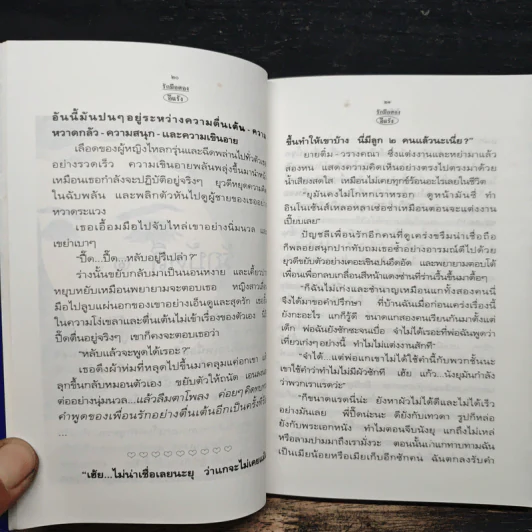 ๒๐
รักมือสอง
อันนี้มันปนๆอยู่ระหว่างความตื่นเต้น - ความ
หวาดกลัว - ความสนุก - และความเขินอาย
เลือดของผู้หญิงไหลกรุ่นและฉีดพล่านไปทั่วตัวเธอ
อย่างรวดเร็ว ความเขินอายพลันพลุ่งขึ้นมา
เหมือนเธอกำลังจะปฏิบัติอยู่จริงๆ ยุวดีหยุดความคิด
ในฉับพลัน และพลิกตัวหันไปดูผู้ชายของเธออย่าง
หวาดระแวง
เธอเอื้อมมือไปจับไหล่เขาอย่างนิ่มนวล
เขย่าเบาๆ
“ปี๊ด...ปี๊ด...หลับอยู่รึเปล่า?”
ร่างนั้นขยับกลับมาเป็นนอนหงาย และ
หยุบหยับเหมือนพยายามจะตอบเธอ หญิงสาว
มือไปลูบแผ่นอกของเขาอย่างเอ็นดูและสุดรัก
ในความโง่เขลาและตื่นเต้นไม่เข้าเรื่องของตัวเอง
ปี๊ดตื่นอยู่จริงๆ เขาก็คงจะตอบเธอว่า
“หลับแล้วจะพูดได้เรอะ?”
เธอดึงผ้าห่มที่หลุดไปขึ้นมาคลุมแค่อกเขา
ลุกขึ้นกลับหมอนตัวเอง ขยับตัวให้ถนัด
อย่างนุ่มนวล...แล้วลืมตาโพลง ค่อยๆคิด
คำพูดของเพื่อนรักอย่างตื่นเต้นอีกเป็นครั้งที่
...
♡♡♡♡♡♡♡♡♡♡
“เฮ้ย...ไม่น่าเชื่อเลยนะยุ ว่าแกจะไม่เคย
๒๑
รักมือสอง
ขึ้นทำให้เขาบ้าง นี่มีลูก ๒ คนแล้วนะเนี่ย?”
ยายติ๋ม - วรางคณา ซึ่งแต่งงานและหย่ามาแล้ว
สองหน แสดงความคิดเห็นอย่างตรงไปตรงมาด้วย
น้ำเสียงสดใส เหมือนไม่เคยทุกข์ร้อนอะไรเลยในชีวิต
“ยุมันคงไม่โกหกเราหรอก ดูหน้ามันซี ทำ
อินโนเซ้นส์เหลอหลาเซ่อซ่าเหมือนตอนจะแต่งงาน
เปี๊ยบเลย”
ปัญชลีเพื่อนรักอีกคนที่ดูเคร่งขรึมน่าเชื่อถือ
ก็พลอยสนุกปากทับถมเธอซ้ำอย่างอารมณ์ดีไปด้วย
ยุวดีขยับตัวอย่างเคอะเขินปนอึดอัด และพยายามตอบโต้
เพื่อนเพื่อกลบเกลื่อนสีหน้าแดงซ่านที่ร่านรื้นขึ้นมาดื้อๆ
“ก็ฉันไม่เก่งและชำนาญเหมือนแกทั้งสองคนนี่
จึงได้มาขอคำปรึกษา ที่บ้านฉันเมื่อก่อนเคร่งเรื่องนี้
ยังกะอะไร แกก็รู้ดี ขนาดแกสองคนเรียนกันมาตั้งแต่
เด็ก พ่อฉันยังซักซะจนเบื่อ จำไม่ได้เรอะที่พ่อฉันพูดว่า
เที่ยวเก่งๆอย่างนี้ ทำไมไม่แต่งงานสักที”
“จำได้...แต่พ่อแกเขาไม่ได้ใช้คำนี้กับพวกชั้นนะ
เขาใช้คำว่าทำไมไม่มีผัวซักที เฮ้ย แก้ว...นังยุมันกำลังว่า
พวกเราแรดว่ะ”
“ก็ขนาดแรดนี่น่ะ ยังหาผัวไม่ได้ดีและไม่ได้เร็ว
อย่างมันเลย พี่ปี๊ดน่ะนะ ดียังกับเทวดา รูปก็หล่อ
ยังกับพระเอกหนัง ทำไมตอนจีบนังยุ แกถึงไม่เหล่
หรือลามปามมาถึงเรามั่งวะ ตอนนั้นเค้าแกทาบทามฉัน
เป็นเมียน้อยหรือเมียเก็บอีกซักคน ฉันตกลงรับคำ